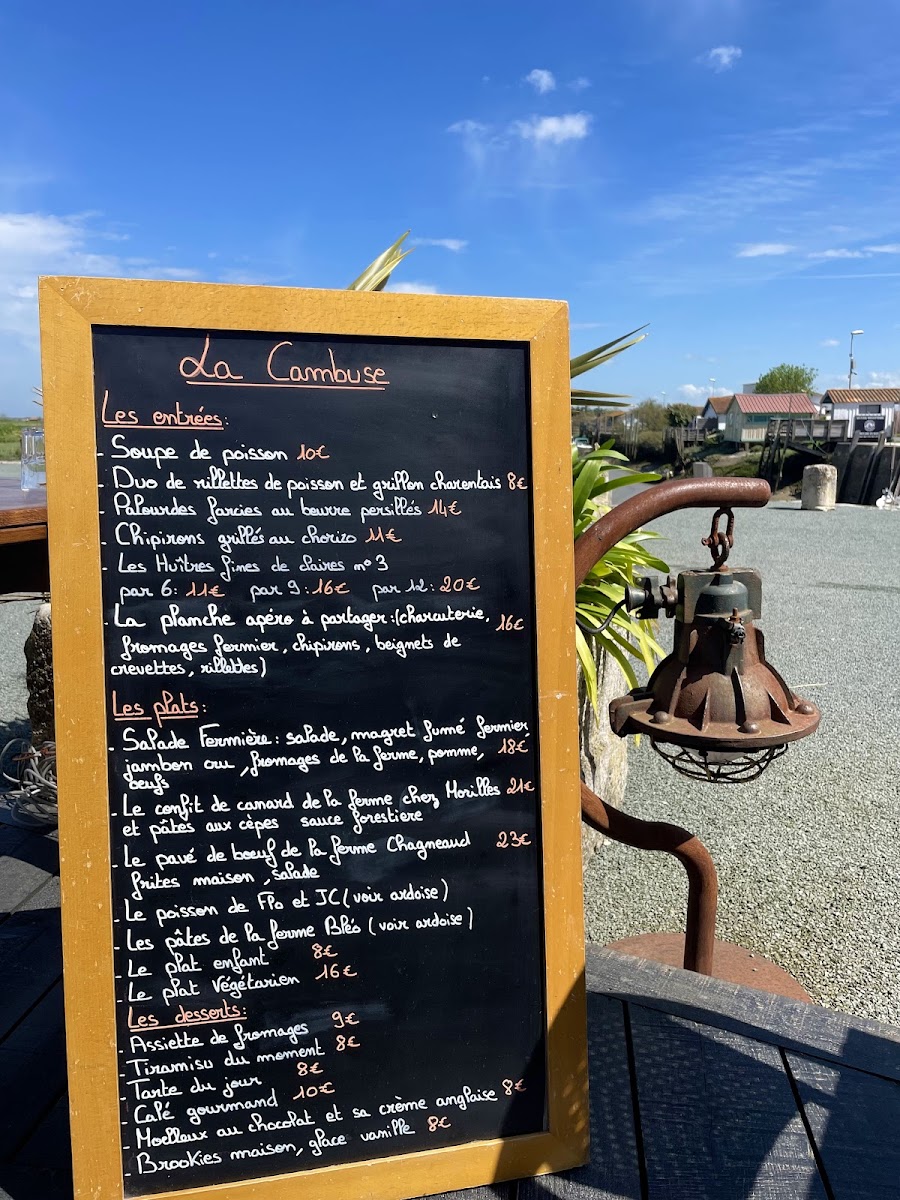 La Cambuse
Les entrées:
- Soupe de poisson 10€
- Duo de rillettes de poisson et grillon charentais 8€
- Palourdes farcies au beurre persillés 14€
- Chipirons grillés au chorizo 11€
- Les Huîtres fines de claires n° 3
par 6: 11€ par 9: 16€ par 12: 20€
- La planche apéro à partager: (charcuterie, 16€
fromages fermier, chipirons, beignets de
crevettes, rillettes)
Les plats:
- Salade Fermière: salade, magret fumé fermier,
jambon cru, fromages de la ferme, pomme, 18€
oeufs
- Le confit de canard de la ferme chez Morilles 21€
et pâtes aux cèpes sauce forestière
- Le pavé de boeuf de la ferme Chagneaud 23€
frites maison, salade
- Le poisson de Flo et JC (voir ardoise)
- Les pâtes de la ferme Bléo (voir ardoise)
- Le plat enfant 8€
- Le plat Végétarien 16€
Les desserts:
- Assiette de fromages 9€
- Tiramisu du moment 8€
- Tarte du jour 8€
- Café gourmand 10€
- Moelleux au chocolat et sa crème anglaise 8€
- Brookies maison, glace vanille 8€